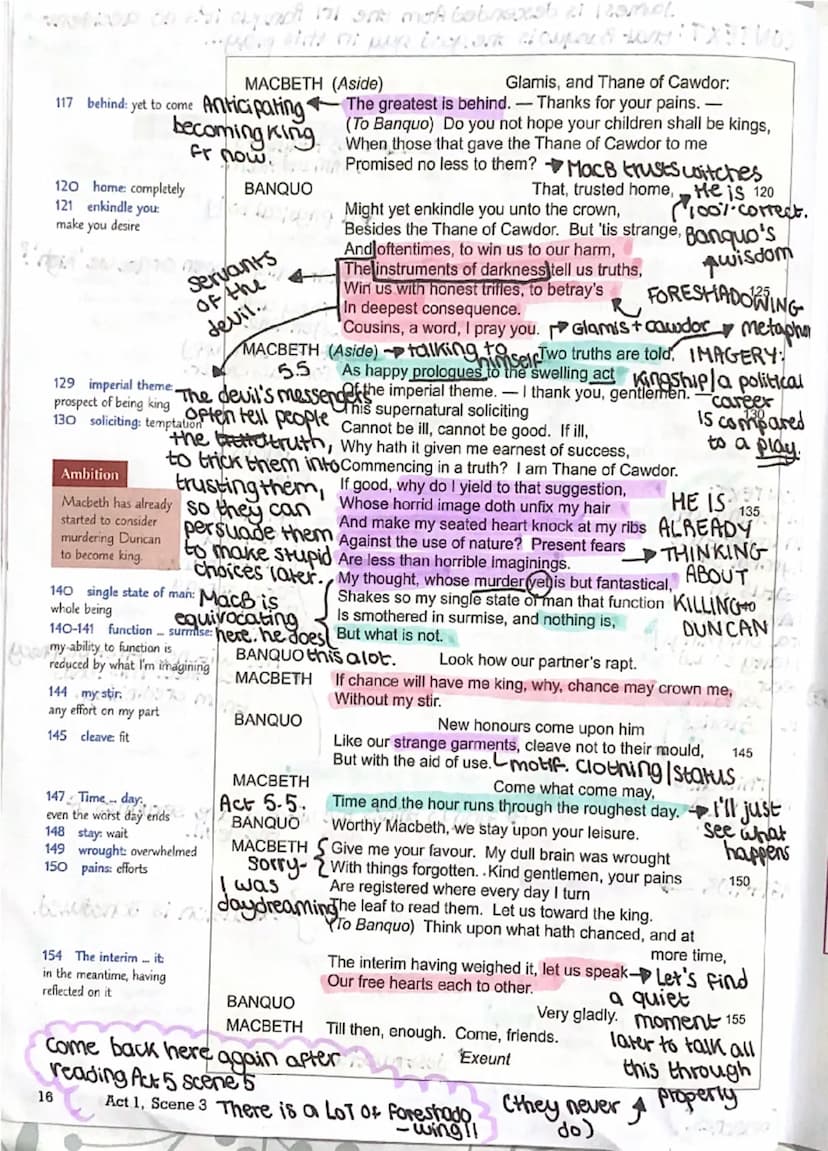 MACBETH (Aside) Glamis, and Thane of Cawdor:
117 behind: yet to come
Anticipating
becoming King
fr now.
The greatest is behind. — Thanks for your pains. —
(To Banquo) Do you not hope your children shall be kings,
When those that gave the Thane of Cawdor to me
Promised no less to them?
MacB trusts witches
120 home: completely
121 enkindle you:
make you desire
BANQUO That, trusted home, 120
He is
100% correct.
Might yet enkindle you unto the crown,
Besides the Thane of Cawdor. But 'tis strange,
Banquo's
wisdom
And oftentimes, to win us to our harm,
The instruments of darkness tell us truths,
servants
of the
devil.
Win us with honest trifles, to betray's 125
In deepest consequence.
FORESHADOWING
Cousins, a word, I pray you.
Glamis + Cawdor
metaphor
MACBETH (Aside) Two truths are told,
talking to
himself
IMAGERY:
5.5
As happy prologues to the swelling act
Kingship/a political
career
is compared
to a play.
129 imperial theme:
prospect of being king
130 soliciting: temptation
The devil's messengers
often tell people
the truth,
to trick them into
trusting them,
so they can
persuade them
to make stupid
choices later.
Of the imperial theme. — I thank you, gentlemen. —
This supernatural soliciting 130
Cannot be ill, cannot be good. If ill,
Why hath it given me earnest of success,
Commencing in a truth? I am Thane of Cawdor.
Ambition
Macbeth has already
started to consider
murdering Duncan
to become king.
If good, why do I yield to that suggestion,
Whose horrid image doth unfix my hair 135
And make my seated heart knock at my ribs
Against the use of nature? Present fears
Are less than horrible imaginings.
HE IS
ALREADY
THINKING
ABOUT
KILLING
DUNCAN
140 single state of man:
whole being
140-141 function ... surmise:
my ability to function is
reduced by what I'm imagining
MacB is
equivocating
here. he does
this alot.
My thought, whose murder yet is but fantastical,
Shakes so my single state of man that function 140
Is smothered in surmise, and nothing is,
But what is not.
BANQUO Look how our partner's rapt.
144 my stir:
any effort on my part
MACBETH If chance will have me king, why, chance may crown me,
Without my stir.
145 cleave: fit
BANQUO New honours come upon him
Like our strange garments, cleave not to their mould, 145
But with the aid of use.
motif. Clothing/Status
MACBETH Come what come may,
147 Time ... day:
even the worst day ends
Act 5.5.
Time and the hour runs through the roughest day.
I'll just
see what
happens
148 stay: wait
149 wrought: overwhelmed
150 pains: efforts
BANQUO Worthy Macbeth, we stay upon your leisure.
MACBETH Give me your favour. My dull brain was wrought
sorry-
I was
daydreaming
With things forgotten. Kind gentlemen, your pains 150
Are registered where every day I turn
The leaf to read them. Let us toward the king.
(To Banquo) Think upon what hath chanced, and at
more time,
154 The interim ... it:
in the meantime, having
reflected on it
The interim having weighed it, let us speak
Our free hearts each to other.
Let's find
a quiet
moment
later to talk all
this through
properly
(they never
do)
BANQUO Very gladly. 155
MACBETH Till then, enough. Come, friends.
Exeunt
Come back here again after
reading Act 5 scene 5
There is a LOT of foreshado
-wing!!
16 Act 1, Scene 3